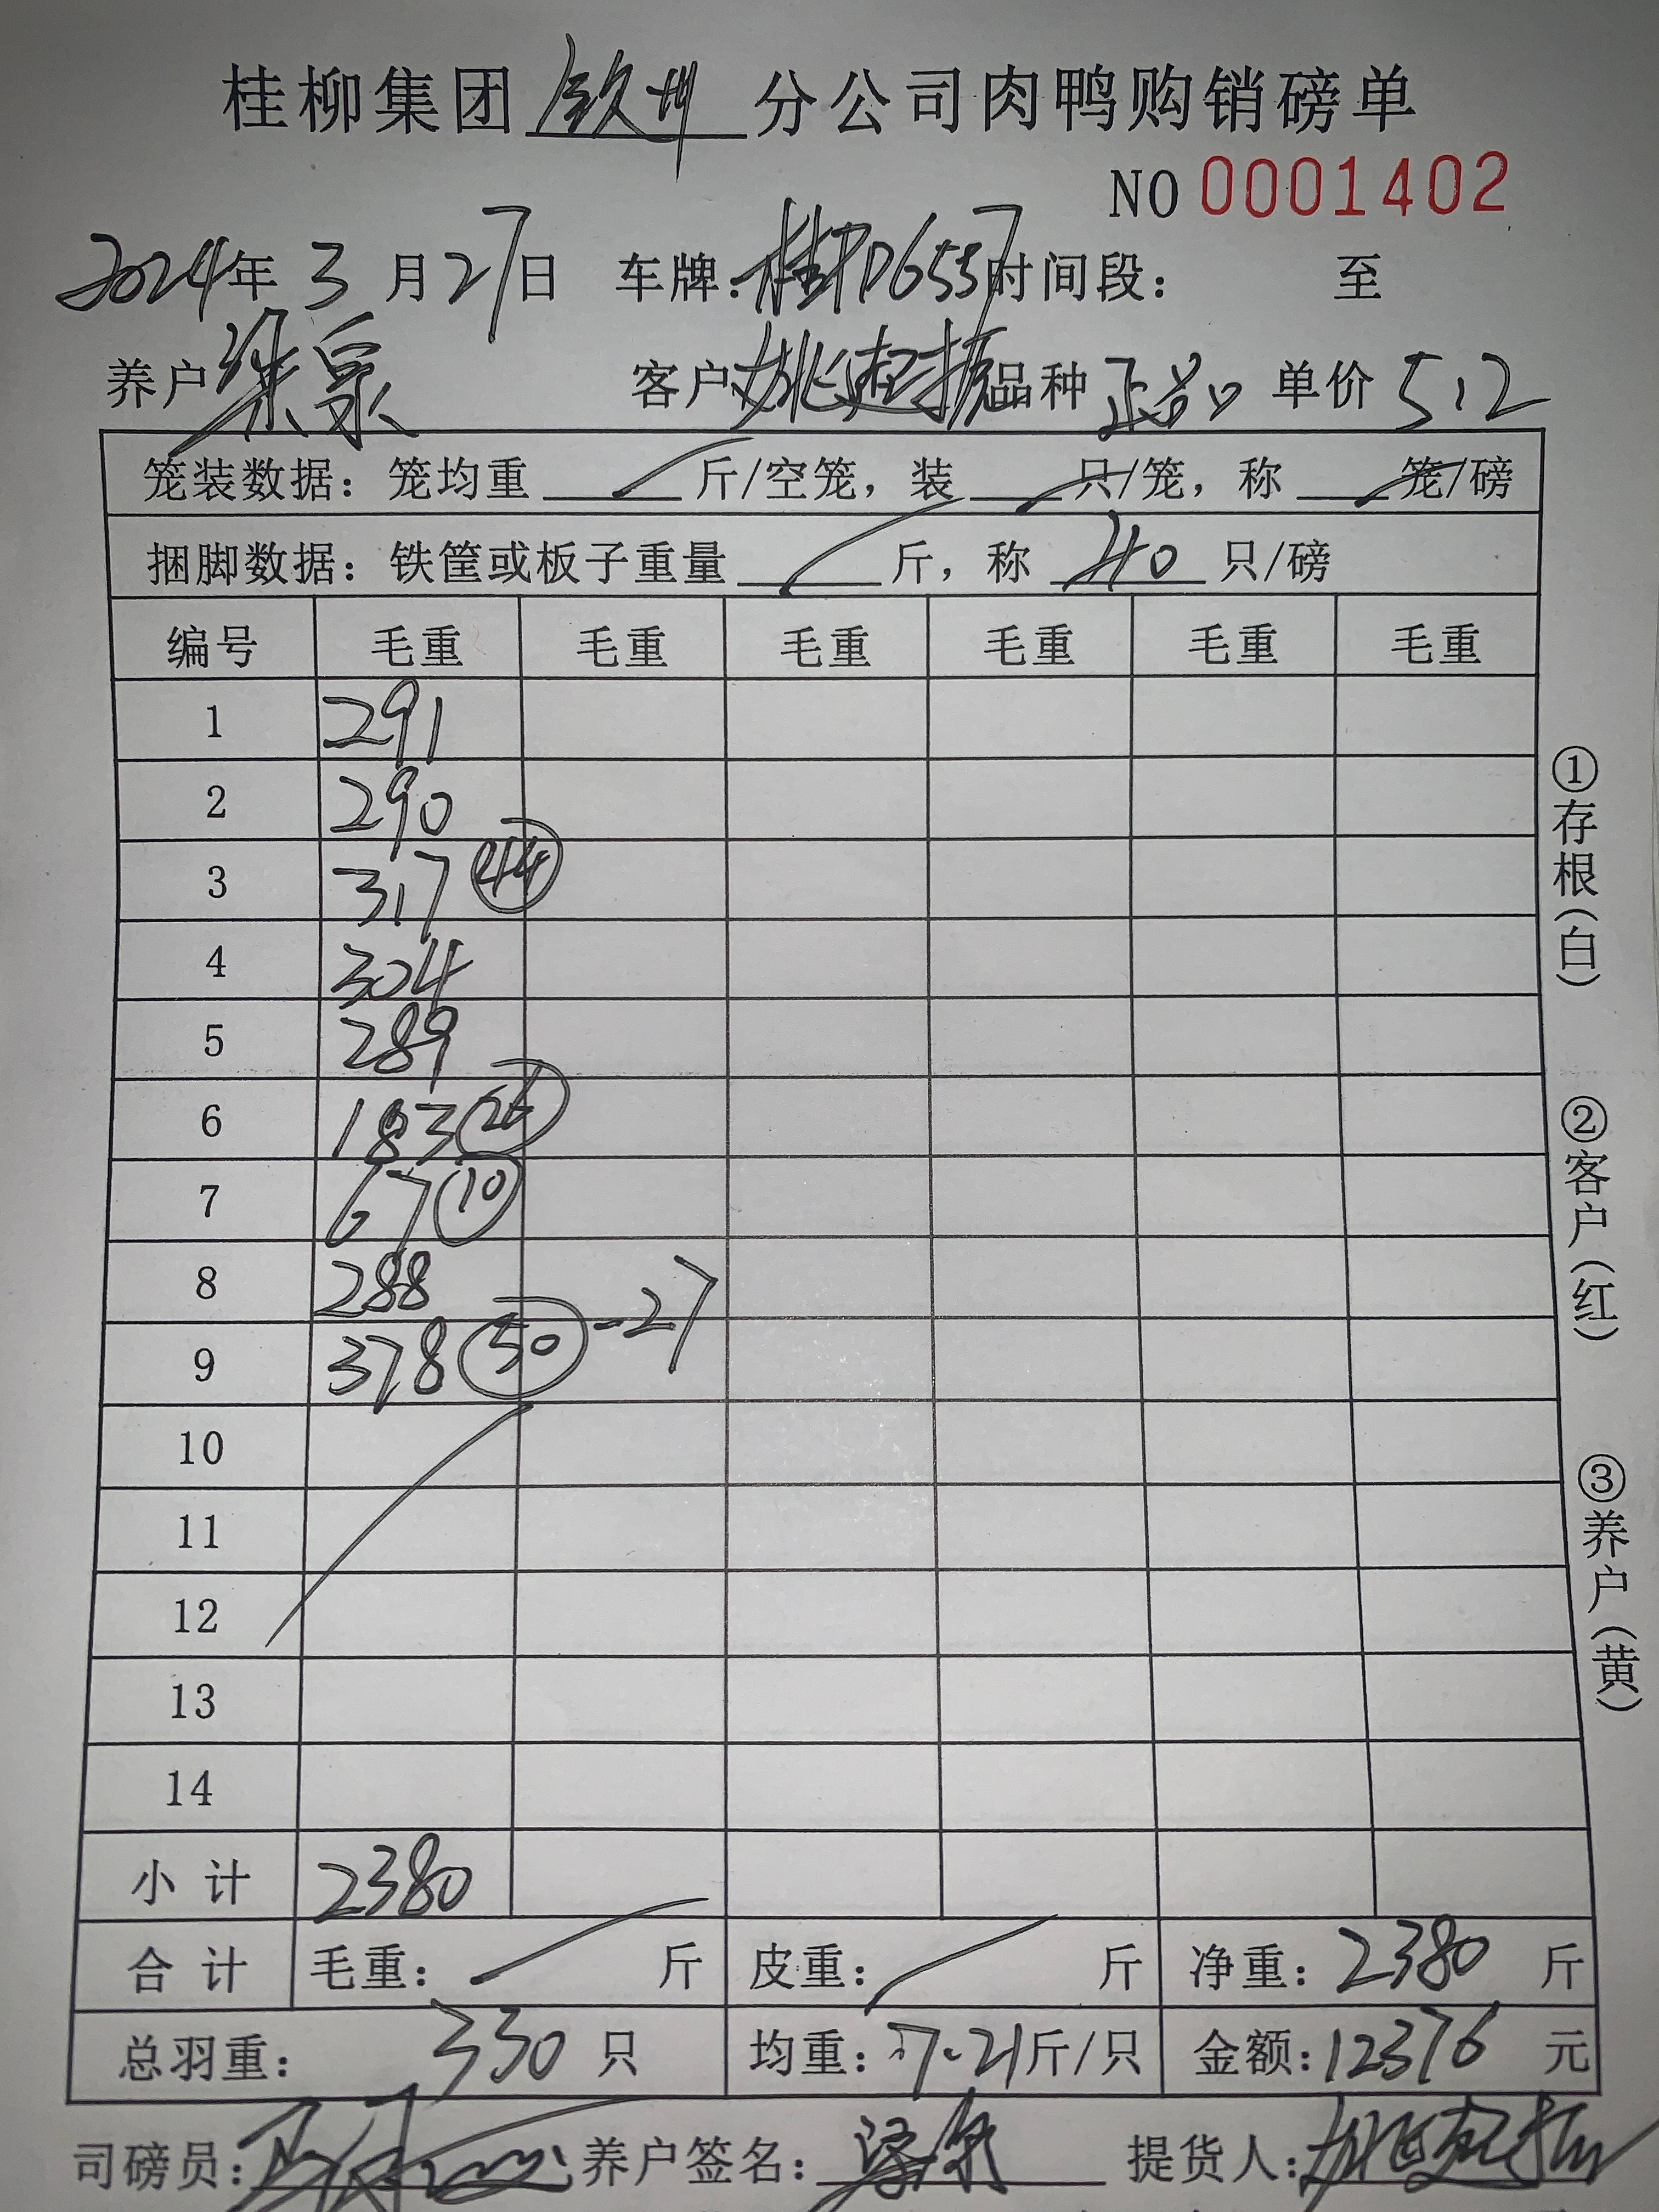 桂柳集团 钦州 分公司肉鸭购销磅单
NO 0001402
2024年 3 月 27日 车牌:桂PD6557 时间段: 至
养户 梁泉 客户 姚起振 品种 正品 单价 5.2
笼装数据: 笼均重 斤/空笼, 装 只/笼, 称 笼/磅
捆脚数据: 铁筐或板子重量 斤, 称 40 只/磅
编号 毛重 毛重 毛重 毛重 毛重 毛重
1 291
2 290
3 317 44
4 304
5 289
6 183 26
7 67 10
8 288
9 378 50 -27
10
11
12
13
14
小计 2380
合计 毛重: 斤 皮重: 斤 净重: 2380 斤
总羽重: 330 只 均重: 7.21斤/只 金额: 12376 元
司磅员: 养户签名: 提货人: 姚起振
①存根(白)
②客户(红)
③养户(黄)